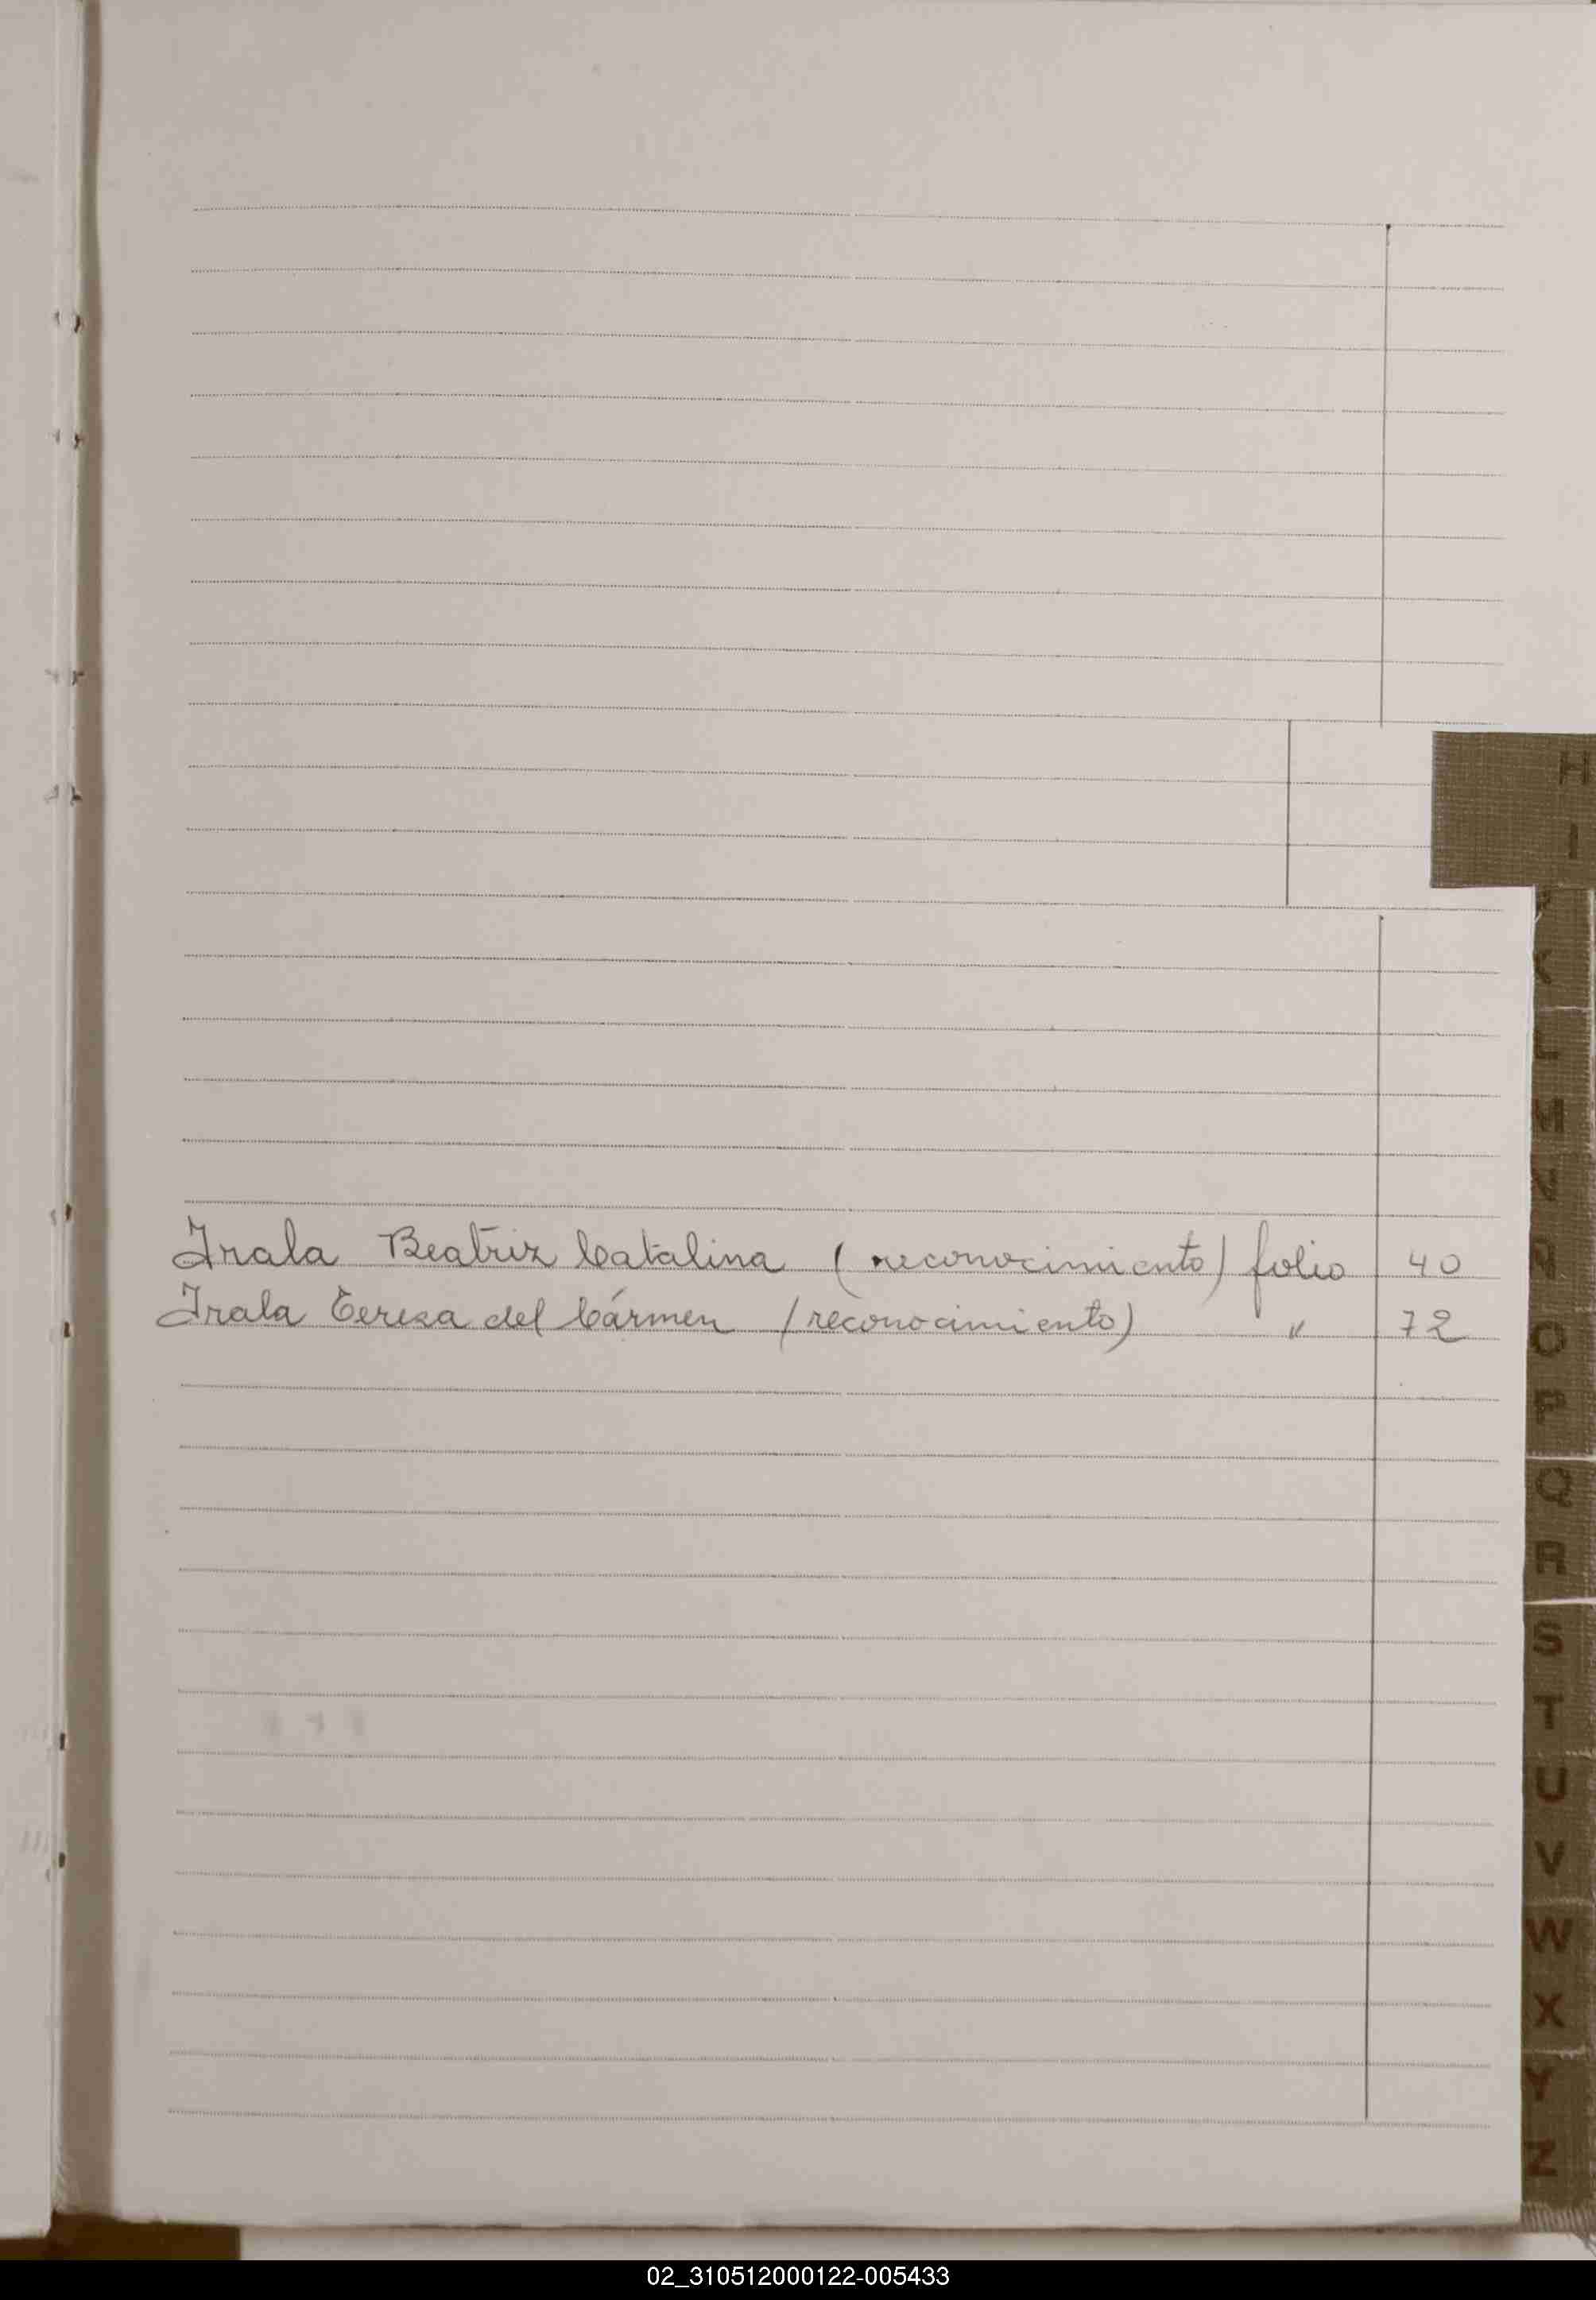 H
I
K
L
M
N
Ñ
O
P
Q
R
S
T
U
V
W
X
Y
Z
Irala Beatriz Catalina (reconocimiento) folio 40
Irala Teresa del Cármen (reconocimiento) " 72
02_310512000122-005433